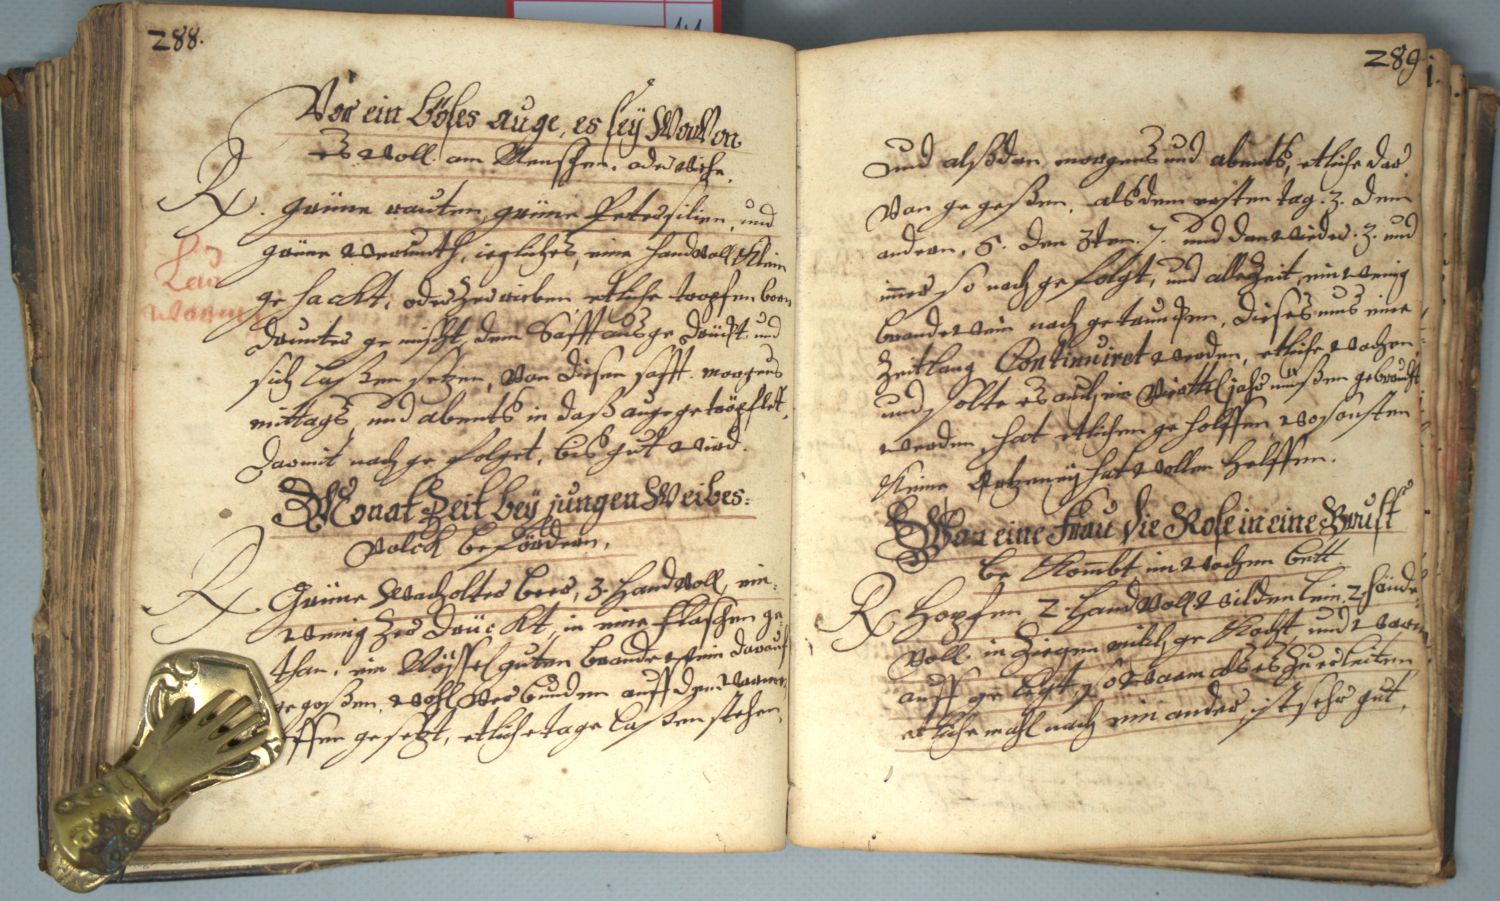 288.
Vor ein böses auge, es seÿ Wovon
es woll. am Menschen. oder Viehe.
Rx. grüne rauten, grüne Petersilien, und
grünen wermuth, iegliches, eine handvoll Klein
ge hackt, oder zerrieben etliche tropfen
Lau
warm
drunter ge mischt, den Safft aus ge drückt, und
sich laßen setzen, von diesen safft morgens
mittags, und abents in daß auge getröpflet,
darmit nach ge folget, biß gut wird.
Monat Zeit beÿ jungen Weibes=
Volck befördern,
Rx Grüne Wacholter beer, 3. handvoll, ein=
wenig zer drückt, in eine flaschen ge=
than, ein Nössel guten brandewein darauf
gegoßen, wohl verbunden auff den warmen
offen gesetzt, etliche tage laßen stehen,
289
und alßdan morgens und abents, etliche dar
von ge geßen, als den ersten tag. 3. den
andern, 5. den 3ten. 7. und dan wieder. 3. und
immer so nach ge folgt, und alle Zeit, ein wenig
brandewein nach getruncken, dieses mus eine
Zeitlang Continuiret werden, etliche wochen,
und solte es auch ein Viertel jahr müßen gebraucht
werden, hat etlichen ge holffen, wo sonsten
Keine Artzeneÿ hat wollen helffen.
Wan eine Frau die Rose in eine Brust
be Kombt im wochen bett
Rx Hopfen 2. handvoll wilden lein, 2 hände=
voll. in Ziegen milch ge Kocht, und warm
auff ge legt, so warm als es zu erleiten
etliche mahl nach ein ander, ist sehr gut,